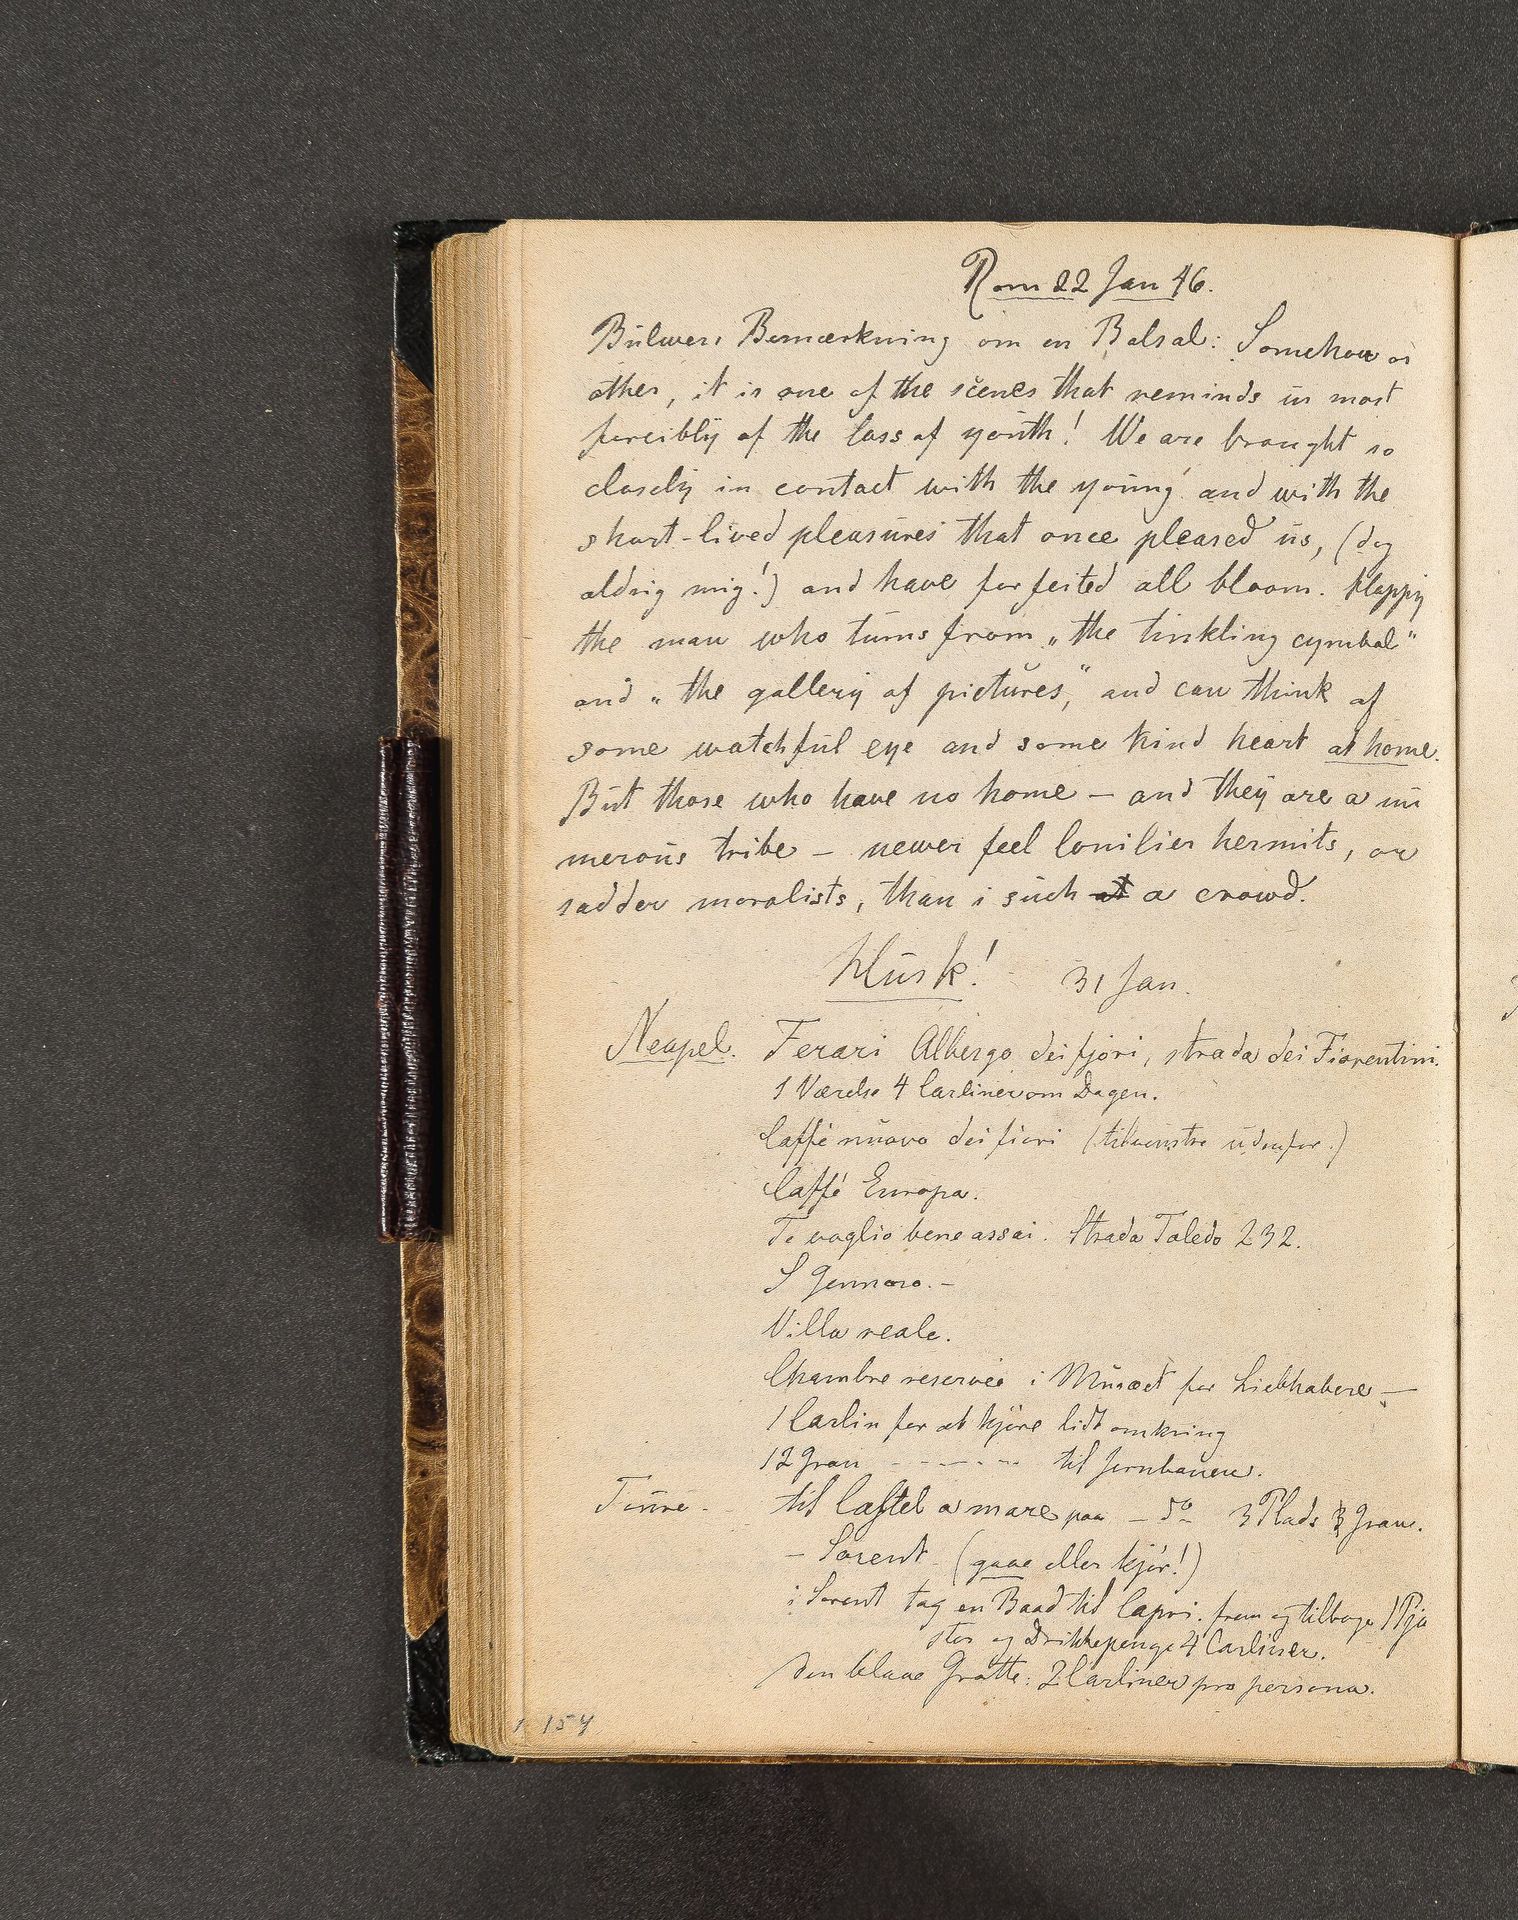 Rom 22 Jan 46.
Bulwers Bemærkning om en Balsal: Somehow or
other, it is one of the scenes that reminds us most
forcibly of the loss of youth! We are brought so
closely in contact with the young and with the
short-lived pleasures that once pleased us, (dog
aldrig mig!) and have forfeited all bloom. Happy
the man who turns from „the tinkling cymbal"
and „the gallery of pictures," and can think of
some watchful eye and some kind heart at home.
But those who have no home — and they are a nu
merous tribe — newer feel lonilier hermits, or
sadder moralists, than i such at a crowd.
Husk! 31 Jan.
Neapel. Ferari Albergo dei fjori, strada dei Fiorentini.
1 Værelse 4 Carliner om Dagen.
Caffé nuovo dei fiori (tilvenstre udenfor.)
Caffé Europa.
Te voglio bene assai. Strada Toledo 232.
S Gennaro. —
Villa reale.
Chambre reservée i Musæet for Liebhabere —
1 Carlin for at kjöre lidt omkring
12 Gran - - - - - - til Jernbanen.
Toure. til Castel a mare paa — do 3 Plads Gran.
— Sorent (gaae eller kjör!)
i Sorent tag en Baad til Capri. frem og tilbage 1 Pja
ster og Drikkepenge 4 Carliner.
den blaae Grotte: 2 Carliner pro persona.
154